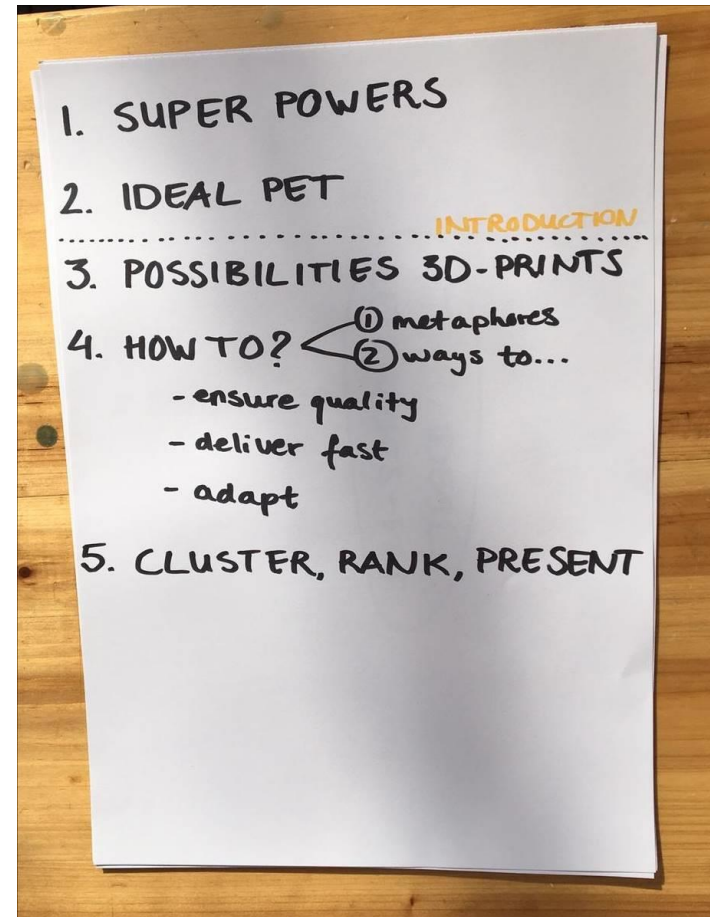 1. SUPER POWERS
2. IDEAL PET
INTRODUCTION
3. POSSIBILITIES 3D-PRINTS
4. HOW TO? ① metaphores
② ways to...
- ensure quality
- deliver fast
- adapt
5. CLUSTER, RANK, PRESENT